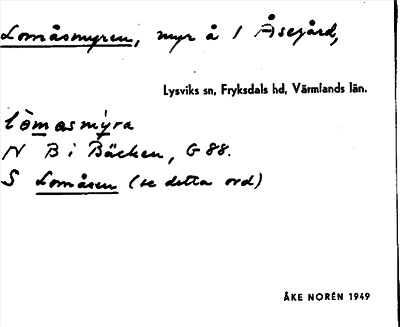 Lomåsmyren, myr å 1 Åsegård,
Lysviks sn, Fryksdals hd, Värmlands län.
lòmasmy̆ra
N B i Bäcken, G 88.
S Lomåsen (se detta ord)
ÅKE NORÉN 1949